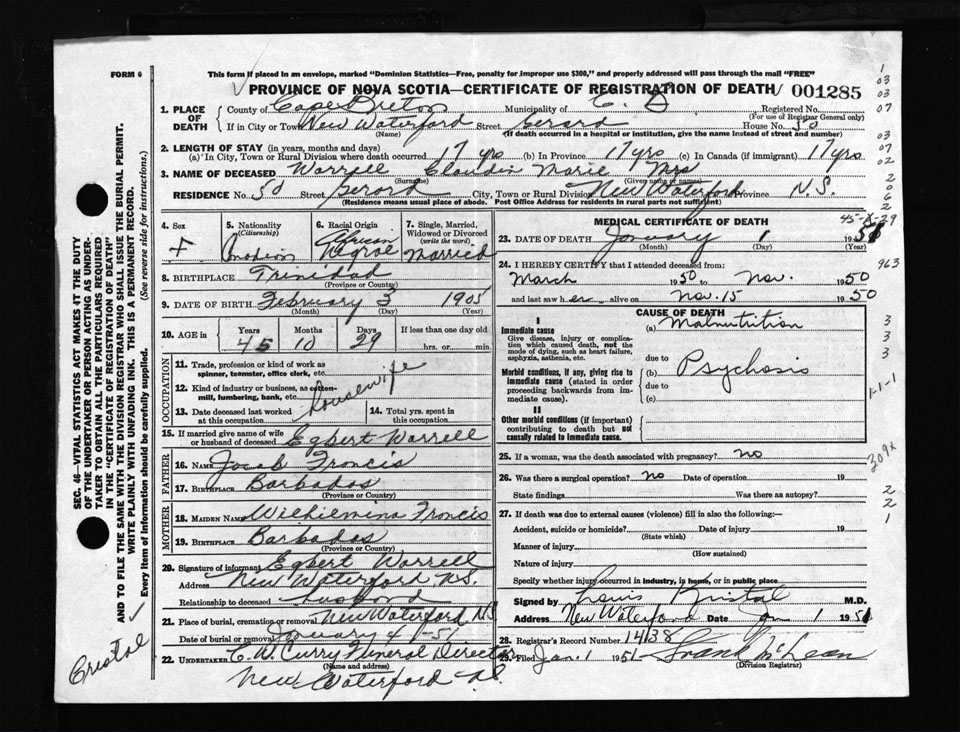 FORM 6
This form if placed in an envelope, marked "Dominion Statistics—Free, penalty for improper use $300," and properly addressed will pass through the mail "FREE"
PROVINCE OF NOVA SCOTIA—CERTIFICATE OF REGISTRATION OF DEATH 001285
1. PLACE OF DEATH
County of Cape Breton Municipality of C. B Registered No.
(For use of Registrar General only)
If in City or Town New Waterford Street Gerard House No. 50
(Name) (If death occurred in a hospital or institution, give the name instead of street and number)
2. LENGTH OF STAY (in years, months and days)
(a) In City, Town or Rural Division where death occurred 17 yrs (b) In Province 17 yrs (c) In Canada (if immigrant) 17 yrs
3. NAME OF DECEASED Worrell Claudin Marie Mrs
(Surname) (Given name or names)
RESIDENCE No. 50 Street Gerard City, Town or Rural Division New Waterford Province N.S.
(Residence means usual place of abode. Post Office Address for residents in rural parts not sufficient)
4. Sex F
5. Nationality (Citizenship) Canadian
6. Racial Origin African Negroe
7. Single, Married, Widowed or Divorced (write the word) Married
8. BIRTHPLACE Trinidad
(Province or Country)
9. DATE OF BIRTH February 3 1905
(Month) (Day) (Year)
10. AGE in Years 45 Months 10 Days 29 If less than one day old
hrs. or min.
OCCUPATION
11. Trade, profession or kind of work as
spinner, teamster, office clerk, etc.
12. Kind of industry or business, as cotton-
mill, lumbering, bank, etc. housewife
13. Date deceased last worked at this occupation
14. Total yrs. spent in this occupation
15. If married give name of wife or husband of deceased Egbert Worrell
FATHER
16. NAME Jacob Francis
17. BIRTHPLACE Barbados
(Province or Country)
MOTHER
18. MAIDEN NAME Wilhiemina Francis
19. BIRTHPLACE Barbados
(Province or Country)
20. Signature of informant Egbert Worrell
Address New Waterford N.S.
Relationship to deceased husband
21. Place of burial, cremation or removal New Waterford N.S.
Date of burial or removal January 4 - 51
22. UNDERTAKER C. W. Curry Funeral Director
(Name and address)
New Waterford N.S.
MEDICAL CERTIFICATE OF DEATH
23. DATE OF DEATH January 1 1951
(Month) (Day)
24. I HEREBY CERTIFY that I attended deceased from:
March 1950 to Nov. 1950
and last saw her alive on Nov. 15 1950
CAUSE OF DEATH
I
Immediate cause (a) Malnutrition
Give disease, injury or complication which caused death, not the mode of dying, such as heart failure, asphyxia, asthenia, etc.
due to
Morbid conditions, if any, giving rise to immediate cause (stated in order proceeding backwards from immediate cause).
(b) Psychosis
due to
(c)
II
Other morbid conditions (if important) contributing to death but not causally related to immediate cause.
25. If a woman, was the death associated with pregnancy? no
26. Was there a surgical operation? no Date of operation 19
State findings Was there an autopsy?
27. If death was due to external causes (violence) fill in also the following:—
Accident, suicide or homicide? Date of injury 19
(State which)
Manner of injury
(How sustained)
Nature of injury
Specify whether injury occurred in industry, in home, or in public place
Signed by Louis Kristal M.D.
Address New Waterford Date Jan 1 1951
28. Registrar's Record Number 1438
29. Filed Jan. 1 1951 Frank McLean
(Division Registrar)
SEC. 46—VITAL STATISTICS ACT MAKES IT THE DUTY
OF THE UNDERTAKER OR PERSON ACTING AS UNDER-
TAKER TO OBTAIN ALL THE PARTICULARS REQUIRED
IN THE "CERTIFICATE OF REGISTRATION OF DEATH"
AND TO FILE THE SAME WITH THE DIVISION REGISTRAR WHO SHALL ISSUE THE BURIAL PERMIT.
WRITE PLAINLY WITH UNFADING INK. THIS IS A PERMANENT RECORD.
Every item of information should be carefully supplied. (See reverse side for instructions.)
Cristal
1
03
03
07
03
07
02
2
0
6
2
45-X-29
963
3
3
3
1-1-1
309x
2
2
1